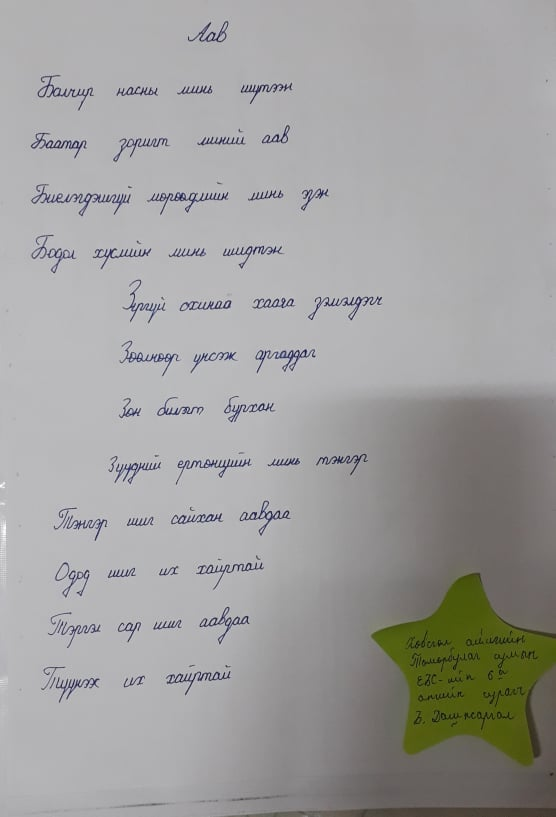 Аав
Балчир насны минь шүтээн
Баатар зоригт миний аав
Биелэгдэшгүй мөрөөдлийн минь эзэн
Бодол хүслийн минь шидтэн
Зэргүй охиноо хаана
Зөөлнөөр үнсэж аргаддаг
Зөн билэгт бурхан
Зүүдний ертөнцийн минь тэнгэр
Тэнгэр шиг сайхан аавдаа
Одод шиг их хайртай
Тэргэл сар шиг аавдаа
Түүнээс их хайртай
Хөвсгөл аймгийн
Төмөрбулаг сумын
ЕБС-ийн 6а
ангийн сурагч
Б. Дашжаргал